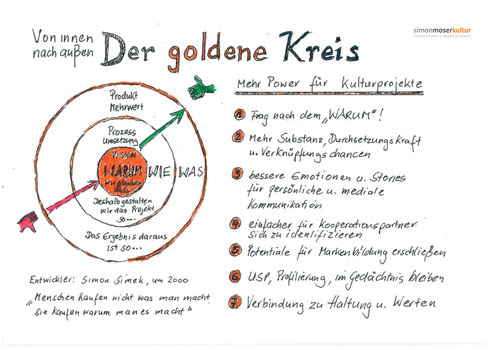 Von innen
nach außen
Der goldene Kreis
simonmoserkultur
CONSULTING & MANAGEMENT
Produkt
Mehrwert
Prozess
Umsetzung
Vision
WARUM WIE WAS
Wir glauben
dass...
Deshalb gestalten
wir das Projekt
so...
Das Ergebnis daraus
ist so...
Entwickler: Simon Simek, um 2000
„Menschen kaufen nicht was man macht
sie kaufen warum man es macht"
Mehr Power für Kulturprojekte
1 Frag nach dem „WARUM"!
2 Mehr Substanz, Durchsetzungskraft
u. Verknüpfungschancen
3 bessere Emotionen u. Stories
für persönliche u. mediale
Kommunikation
4 einfacher für Kooperationspartner
sich zu identifizieren
5 Potentiale für Markenbildung erschließen
6 USP, Profilierung, im Gedächtnis bleiben
7 Verbindung zu Haltung u. Werten